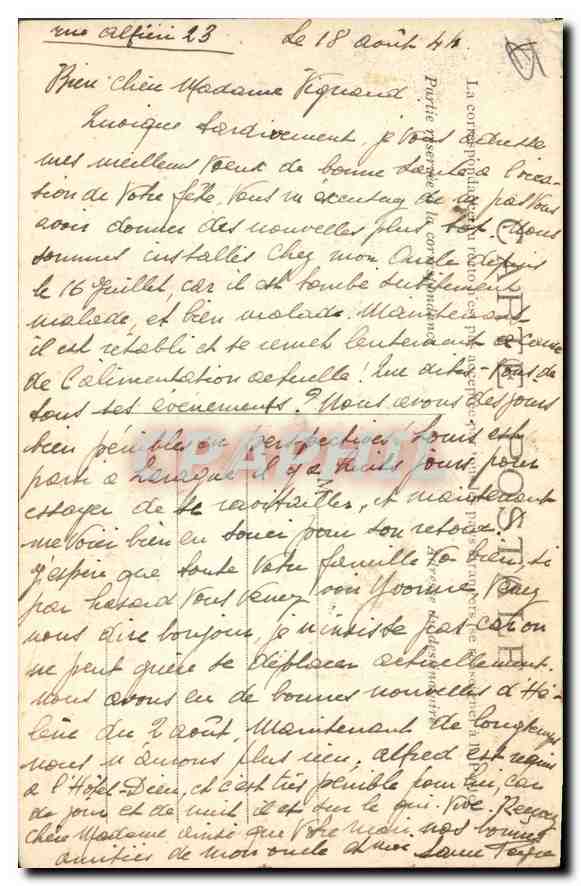 rue Alfieri 23
Le 18 août 44
Bien chère Madame Vignand
Quoique tardivement, je vous adresse
mes meilleurs vœux de bonne santé à l'occa-
sion de votre fête. Vous m'excuserez de ne pas vous
avoir donner des nouvelles plus tôt. Nous
sommes installés chez mon Oncle depuis
le 16 Juillet, car il est tombé subitement
malade, et bien malade. Maintenant
il est rétabli et se remet lentement à cause
de l'alimentation actuelle! Que dites-vous de
tous ses événements? Nous avons des jours
bien pénibles en perspectives. Louis est
parti à Laragne il y a huit jours pour
essayer de se ravitailler, et maintenant
me voici bien en souci pour son retour.
J'espère que toute votre famille va bien, si
par hasard vous venez voir Yvonne, venez
nous dire bonjour, je n'insiste pas car on
ne peut guère se déplacer actuellement.
Nous avons eu de bonnes nouvelles d'Hé-
lène du 2 août. Maintenant de longtemps
nous n'aurons plus rien. Alfred est requis
à l'Hôtel-Dieu, et c'est très pénible pour lui, car
de jour et de nuit il est sur le qui-vive. Recevez
chère Madame ainsi que votre mari nos bonnes
amitiés de mon oncle et moi
CARTE POSTALE
La correspondance au recto n'est pas acceptée par tous les pays étrangers (se renseigner à la Poste)
Partie réservée à la correspondance
Adresse du destinataire